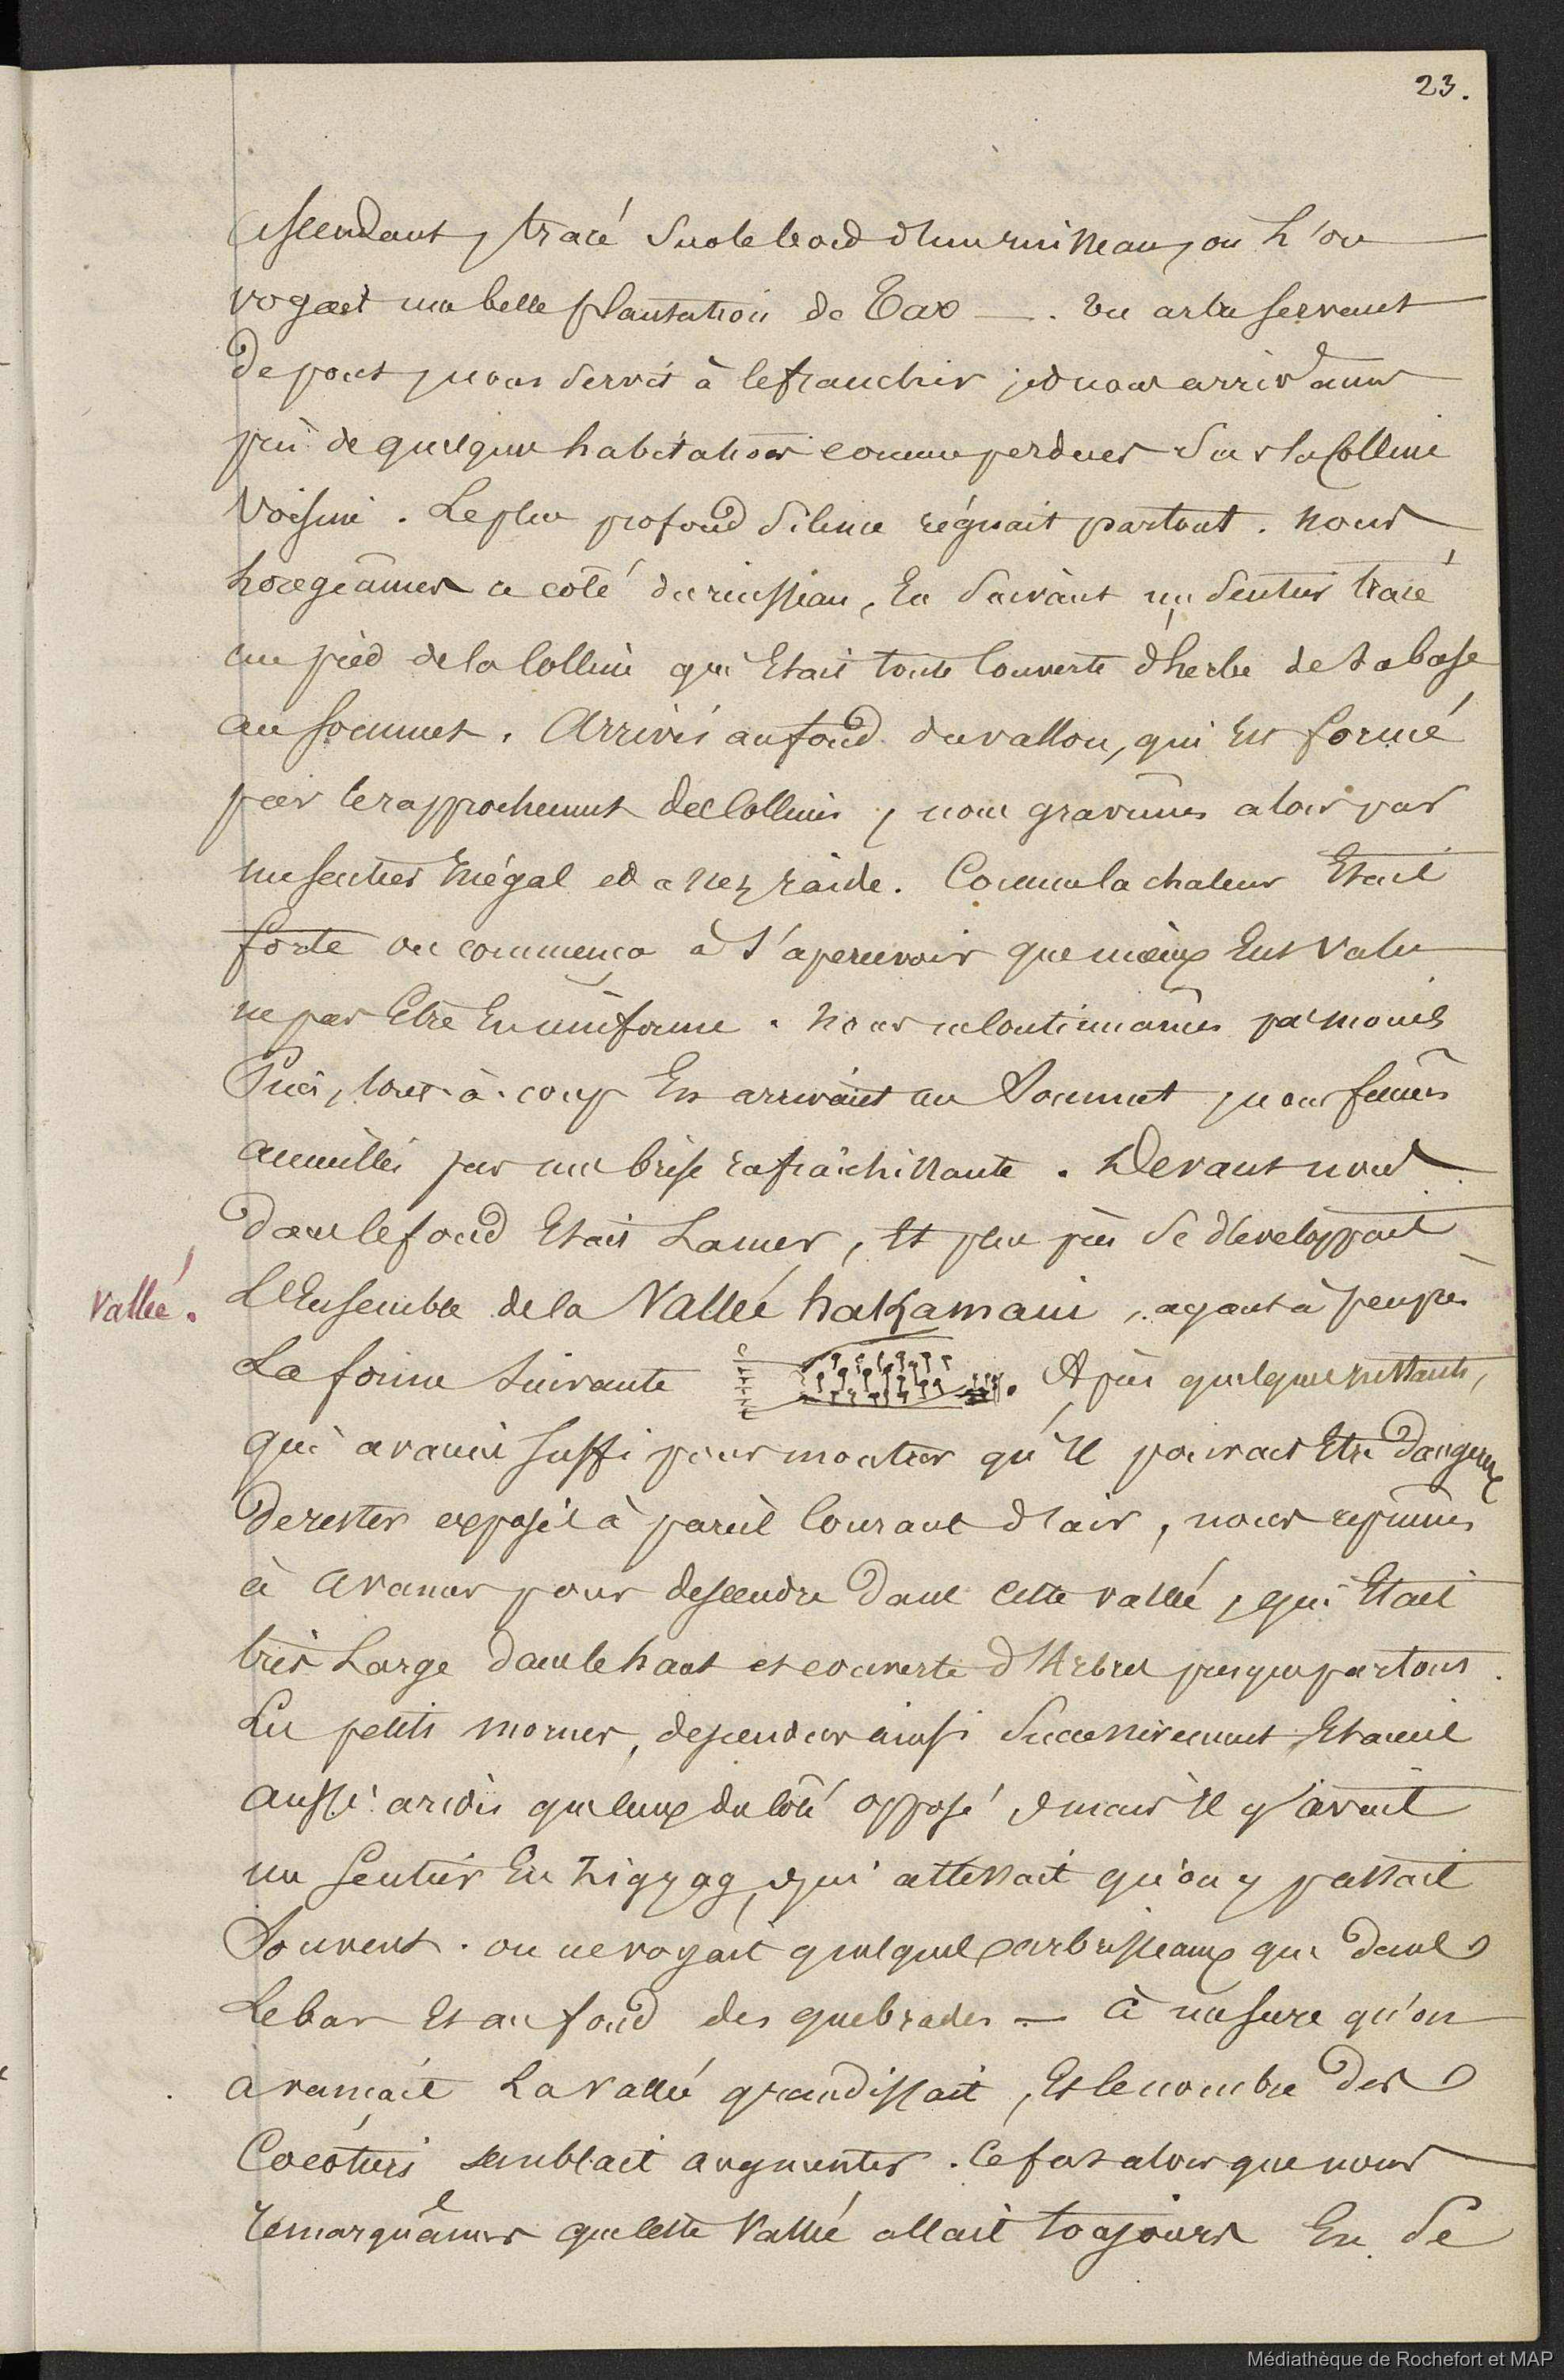 23.
ascendant, tracé sur le bord d'un ruisseau, où l'on
voyait une belle plantation de Taro —. Un arbre servant
de pont, nous servit à le franchir, et nous arrivâmes
près de quelques habitations comme perdues sur la Colline
Voisine. Le plus profond silence régnait partout. Nous
longeâmes a coté du ruisseau, en suivant un sentier tracé
au pied de la Colline qui Etait toute Couverte d'herbe de sa base
au sommet. Arrivés au fond du vallon, qui Est formé
par le rapprochement des Collines, nous gravîmes alors par
un sentier inégal et assez raide. Comme la chaleur Etait
forte on commença à s'apercevoir que mieux Eut valu
ne pas Etre En uniforme. Nous ne Continuâmes pas moins
Puis, tout-à-coup En arrivant au Sommet, nous fûmes
accueillis par une brise rafraîchissante. Devant nous
dans le fond Etait La mer, Et plus près se développait
Vallée.
L'Ensemble de la Vallée hakamaiii, ayant à peu près
La forme suivante . Après quelques instants,
qui avaient suffi pour montrer qu'il pouvait Etre dangereux
de rester exposés à pareil Courant d'air, nous reprîmes
à avancer pour descendre dans Cette vallée, qui Etait
très Large dans le haut et couverte d'Arbres presque partout.
Les petits mornes, descendus ainsi successivement Etaient
aussi arides que Ceux du Côté opposé, mais il y avait
un sentier En zigzag, qui attestait qu'on y passait
Souvent. on ne voyait quelques arbrisseaux que dans
Le bas Et au fond des quebrades — à mesure qu'on
avançait La Vallée grandissait, Et le nombre des
Cocotiers semblait augmenter. Ce fut alors que nous
remarquâmes que Cette Vallée allait toujours En se
Médiathèque de Rochefort et MAP